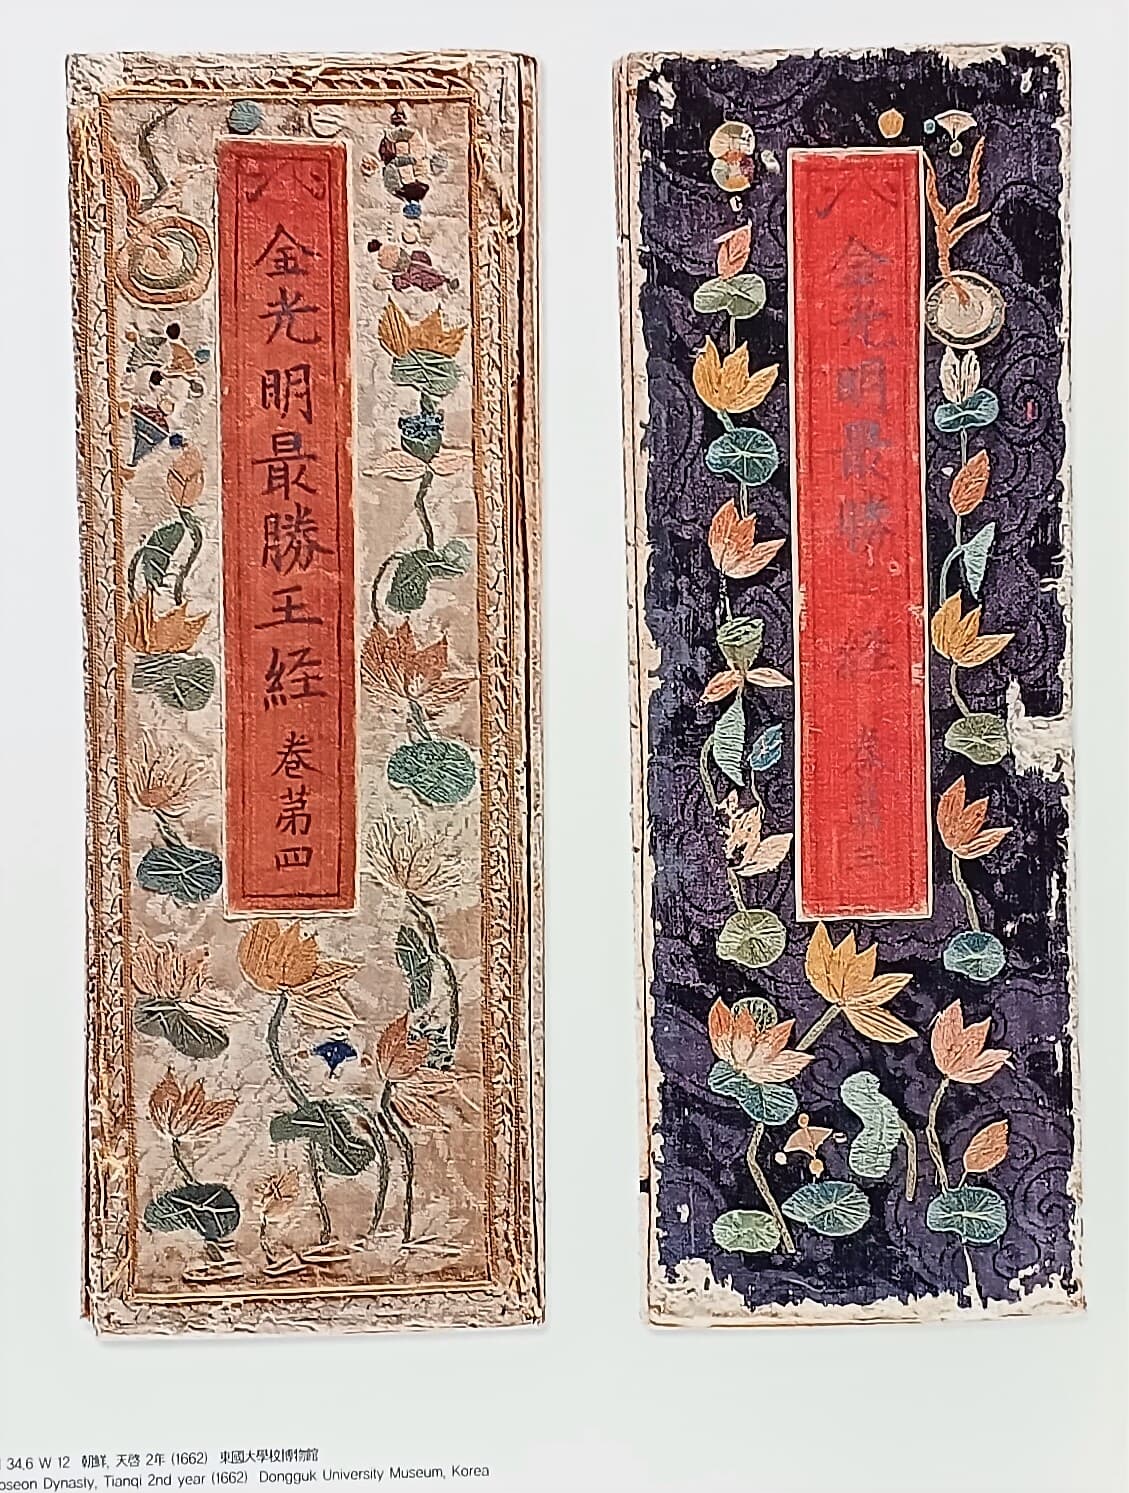 金光明最勝王経 卷苐四
金光明最勝王経 卷苐三
34.6 W 12 朝鮮, 天啓 2年 (1662) 東國大學校博物館
oseon Dynasty, Tianqi 2nd year (1662) Dongguk University Museum, Korea